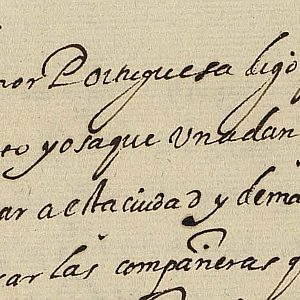 nor Portuguesa digo
to yo saque Una dan
ar a esta ciudad y demas
sar las compañeras q